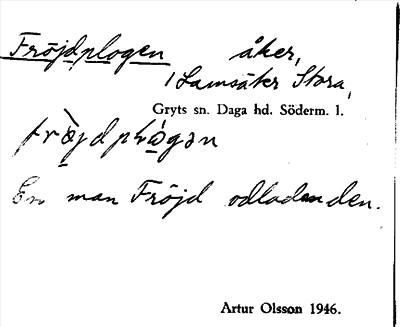 Fröjdplogen åker,
/ Lamsäter Stora,
Gryts sn. Daga hd. Söderm. l.
En man Fröjd odladen den.
Artur Olsson 1946.